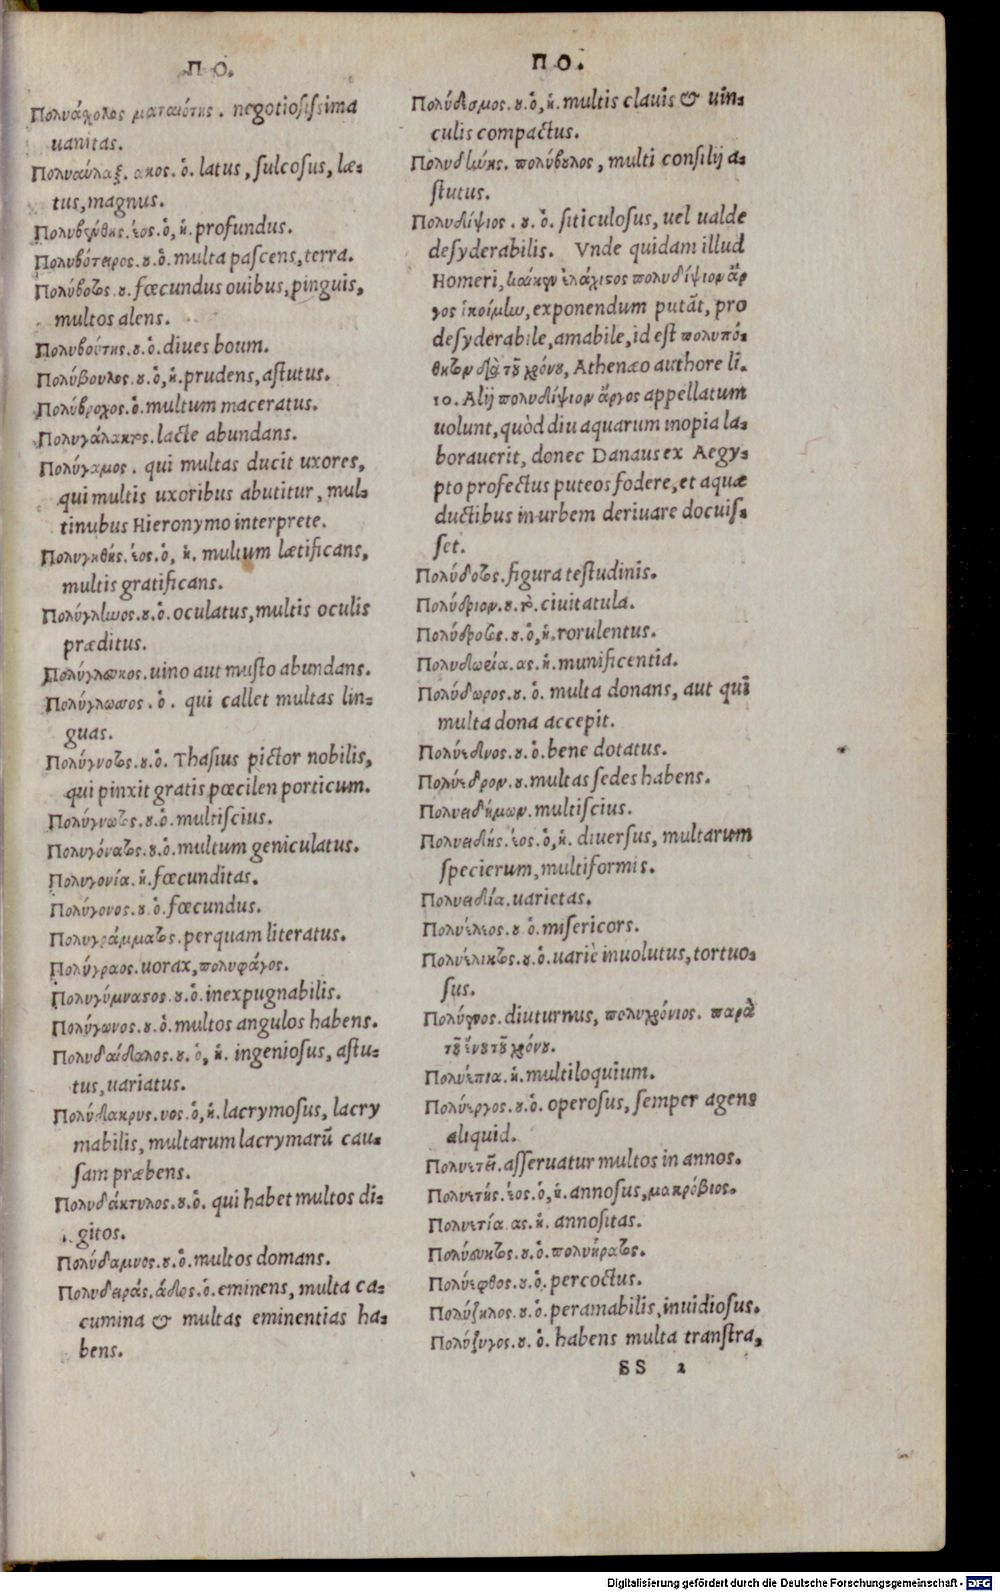 ΠΟ.
Πολυάσχολος ματαιότης. negotiosissima
uanitas.
Πολυαύλαξ. ακος. ὁ. latus, sulcosus, læ-
tus, magnus.
Πολυβενθής. έος. ὁ, ἡ. profundus.
Πολυβότειρος. ου. ὁ. multa pascens, terra.
Πολύβοτος. ου. fœcundus ouibus, pinguis,
multos alens.
Πολυβούτης. ου. ὁ. diues boum.
Πολύβουλος. ου. ὁ, ἡ. prudens, astutus.
Πολύβροχος. ὁ. multum maceratus.
Πολυγάλακτος. lacte abundans.
Πολύγαμος. qui multas ducit uxores,
qui multis uxoribus abutitur, mul-
tinubus Hieronymo interprete.
Πολυγηθής. έος. ὁ, ἡ. multum lætificans,
multis gratificans.
Πολύγληνος. ου. ὁ. oculatus, multis oculis
præditus.
Πολύγλευκος. uino aut musto abundans.
Πολύγλωσσος. ὁ. qui callet multas lin-
guas.
Πολύγνοτος. ου. ὁ. Thasius pictor nobilis,
qui pinxit gratis pœcilen porticum.
Πολύγνωτος. ου. ὁ. multiscius.
Πολυγόνατος. ου. ὁ. multum geniculatus.
Πολυγονία. ἡ. fœcunditas.
Πολύγονος. ου. ὁ. fœcundus.
Πολυγράμματος. perquam literatus.
Πολύγραος. uorax, πολυφάγος.
Πολυγύμναστος. ου. ὁ. inexpugnabilis.
Πολύγωνος. ου. ὁ. multos angulos habens.
Πολυδαίδαλος. ου. ὁ, ἡ. ingeniosus, astu-
tus, uariatus.
Πολύδακρυς. υος. ὁ, ἡ. lacrymosus, lacry
mabilis, multarum lacrymarū cau-
sam præbens.
Πολυδάκτυλος. ου. ὁ. qui habet multos di-
gitos.
Πολύδαμνος. ου. ὁ. multos domans.
Πολυδειράς. άδος. ὁ. eminens, multa ca-
cumina & multas eminentias ha-
bens.
ΠΟ.
Πολύδεσμος. ου. ὁ, ἡ. multis clauis & uin-
culis compactus.
Πολυδήνης. πολύβουλος, multi consilij a-
stutus.
Πολυδίψιος. ου. ὁ. siticulosus, uel ualde
desyderabilis. Vnde quidam illud
Homeri, καί κεν ἐλέγχιστος πολυδίψιον ἄρ
γος ἱκοίμην, exponendum putāt, pro
desyderabile, amabile, id est πολυπό-
θητον διὰ τοῦ χρόνου, Athenæo authore li.
10. Alij πολυδίψιον ἄργος appellatum
uolunt, quòd diu aquarum inopia la-
borauerit, donec Danaus ex Aegy-
pto profectus puteos fodere, et aquæ
ductibus in urbem deriuare docuis-
set.
Πολύδοτος. figura testudinis.
Πολύδριον. ου. τὸ. ciuitatula.
Πολύδροσος. ου. ὁ, ἡ. rorulentus.
Πολυδωρία. ας. ἡ. munificentia.
Πολύδωρος. ου. ὁ. multa donans, aut qui
multa dona accepit.
Πολύεδνος. ου. ὁ. bene dotatus.
Πολύεδρον. ου. multas sedes habens.
Πολυειδήμων. multiscius.
Πολυειδής. έος. ὁ, ἡ. diuersus, multarum
specierum, multiformis.
Πολυειδία. uarietas.
Πολυέλεος. ου ὁ. misericors.
Πολυέλικτος. ου. ὁ. uariè inuolutus, tortuo-
sus.
Πολύενος. diuturnus, πολυχρόνιος. παρὰ
τοῦ ἕνου τοῦ χρόνου.
Πολυέπια. ἡ. multiloquium.
Πολύεργος. ου. ὁ. operosus, semper agens
aliquid.
Πολυετεῖ. asseruatur multos in annos.
Πολυετής. έος. ὁ, ἡ. annosus, μακρόβιος.
Πολυετία. ας. ἡ. annositas.
Πολύευκτος. ου. ὁ. πολυήρατος.
Πολύεφθος. ου. ὁ. percoctus.
Πολύζηλος. ου. ὁ. peramabilis, inuidiosus.
Πολύζυγος. ου. ὁ. habens multa transtra,
SS 2
Digitalisierung gefördert durch die Deutsche Forschungsgemeinschaft - DFG